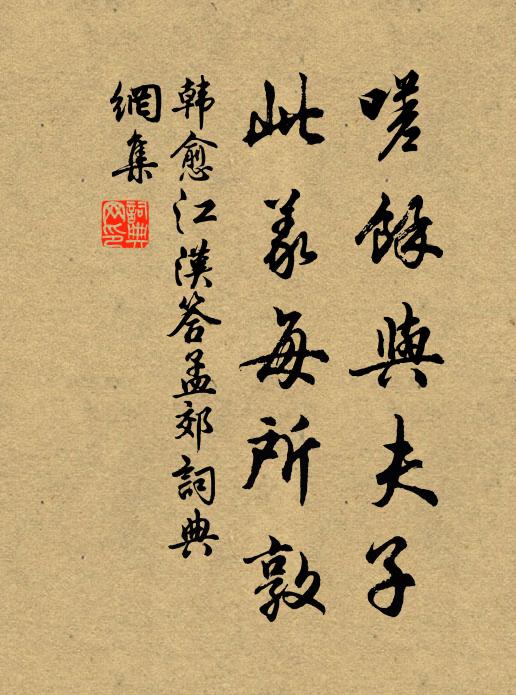 嗟餘與夫子
此義每所敦
韓愈江漢答孟郊詞典
網集
詞典網印